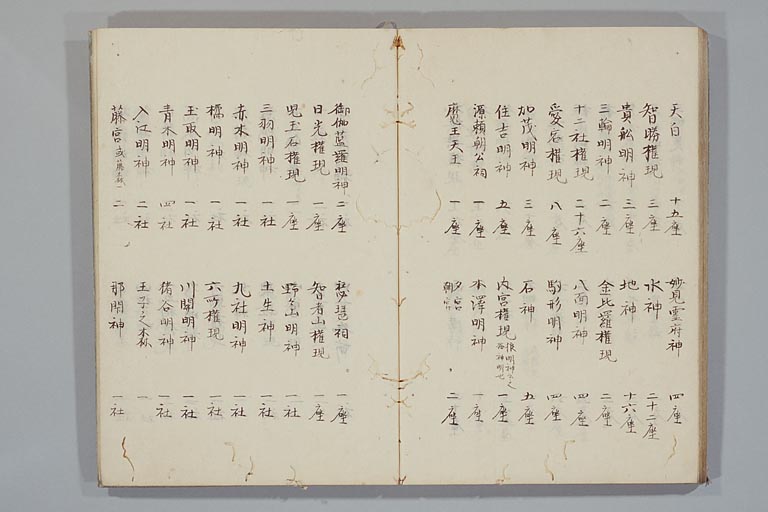 天白 十五座
智勝權現 三座
貴舩明神 三座
三輪明神 二座
十二社權現 二十六座
愛宕權現 八座
加茂明神 三座
住吉明神 五座
源頼朝公祠 一座
魔王天王 一座
妙見霊府神 四座
水神 二十二座
地神 十六座
金比羅權現 二座
八面明神 四座
駒形明神 四座
石神 五座
内宮權現 一座
本澤明神 一座
夕宮 朝宮 二座
御伽藍羅明神 二座
日光權現 一座
児玉石權現 一座
三羽明神 一社
赤木明神 一社
橘明神 一社
玉取明神 一社
青木明神 四社
入江明神 二社
藤宮 二
琵琶祠 一座
智者山權現 一座
野々山明神 一社
土生神 一社
九社明神 一社
六所權現 一社
川関明神 一社
猪谷明神 一社
王子之森 一
那閇神 一社